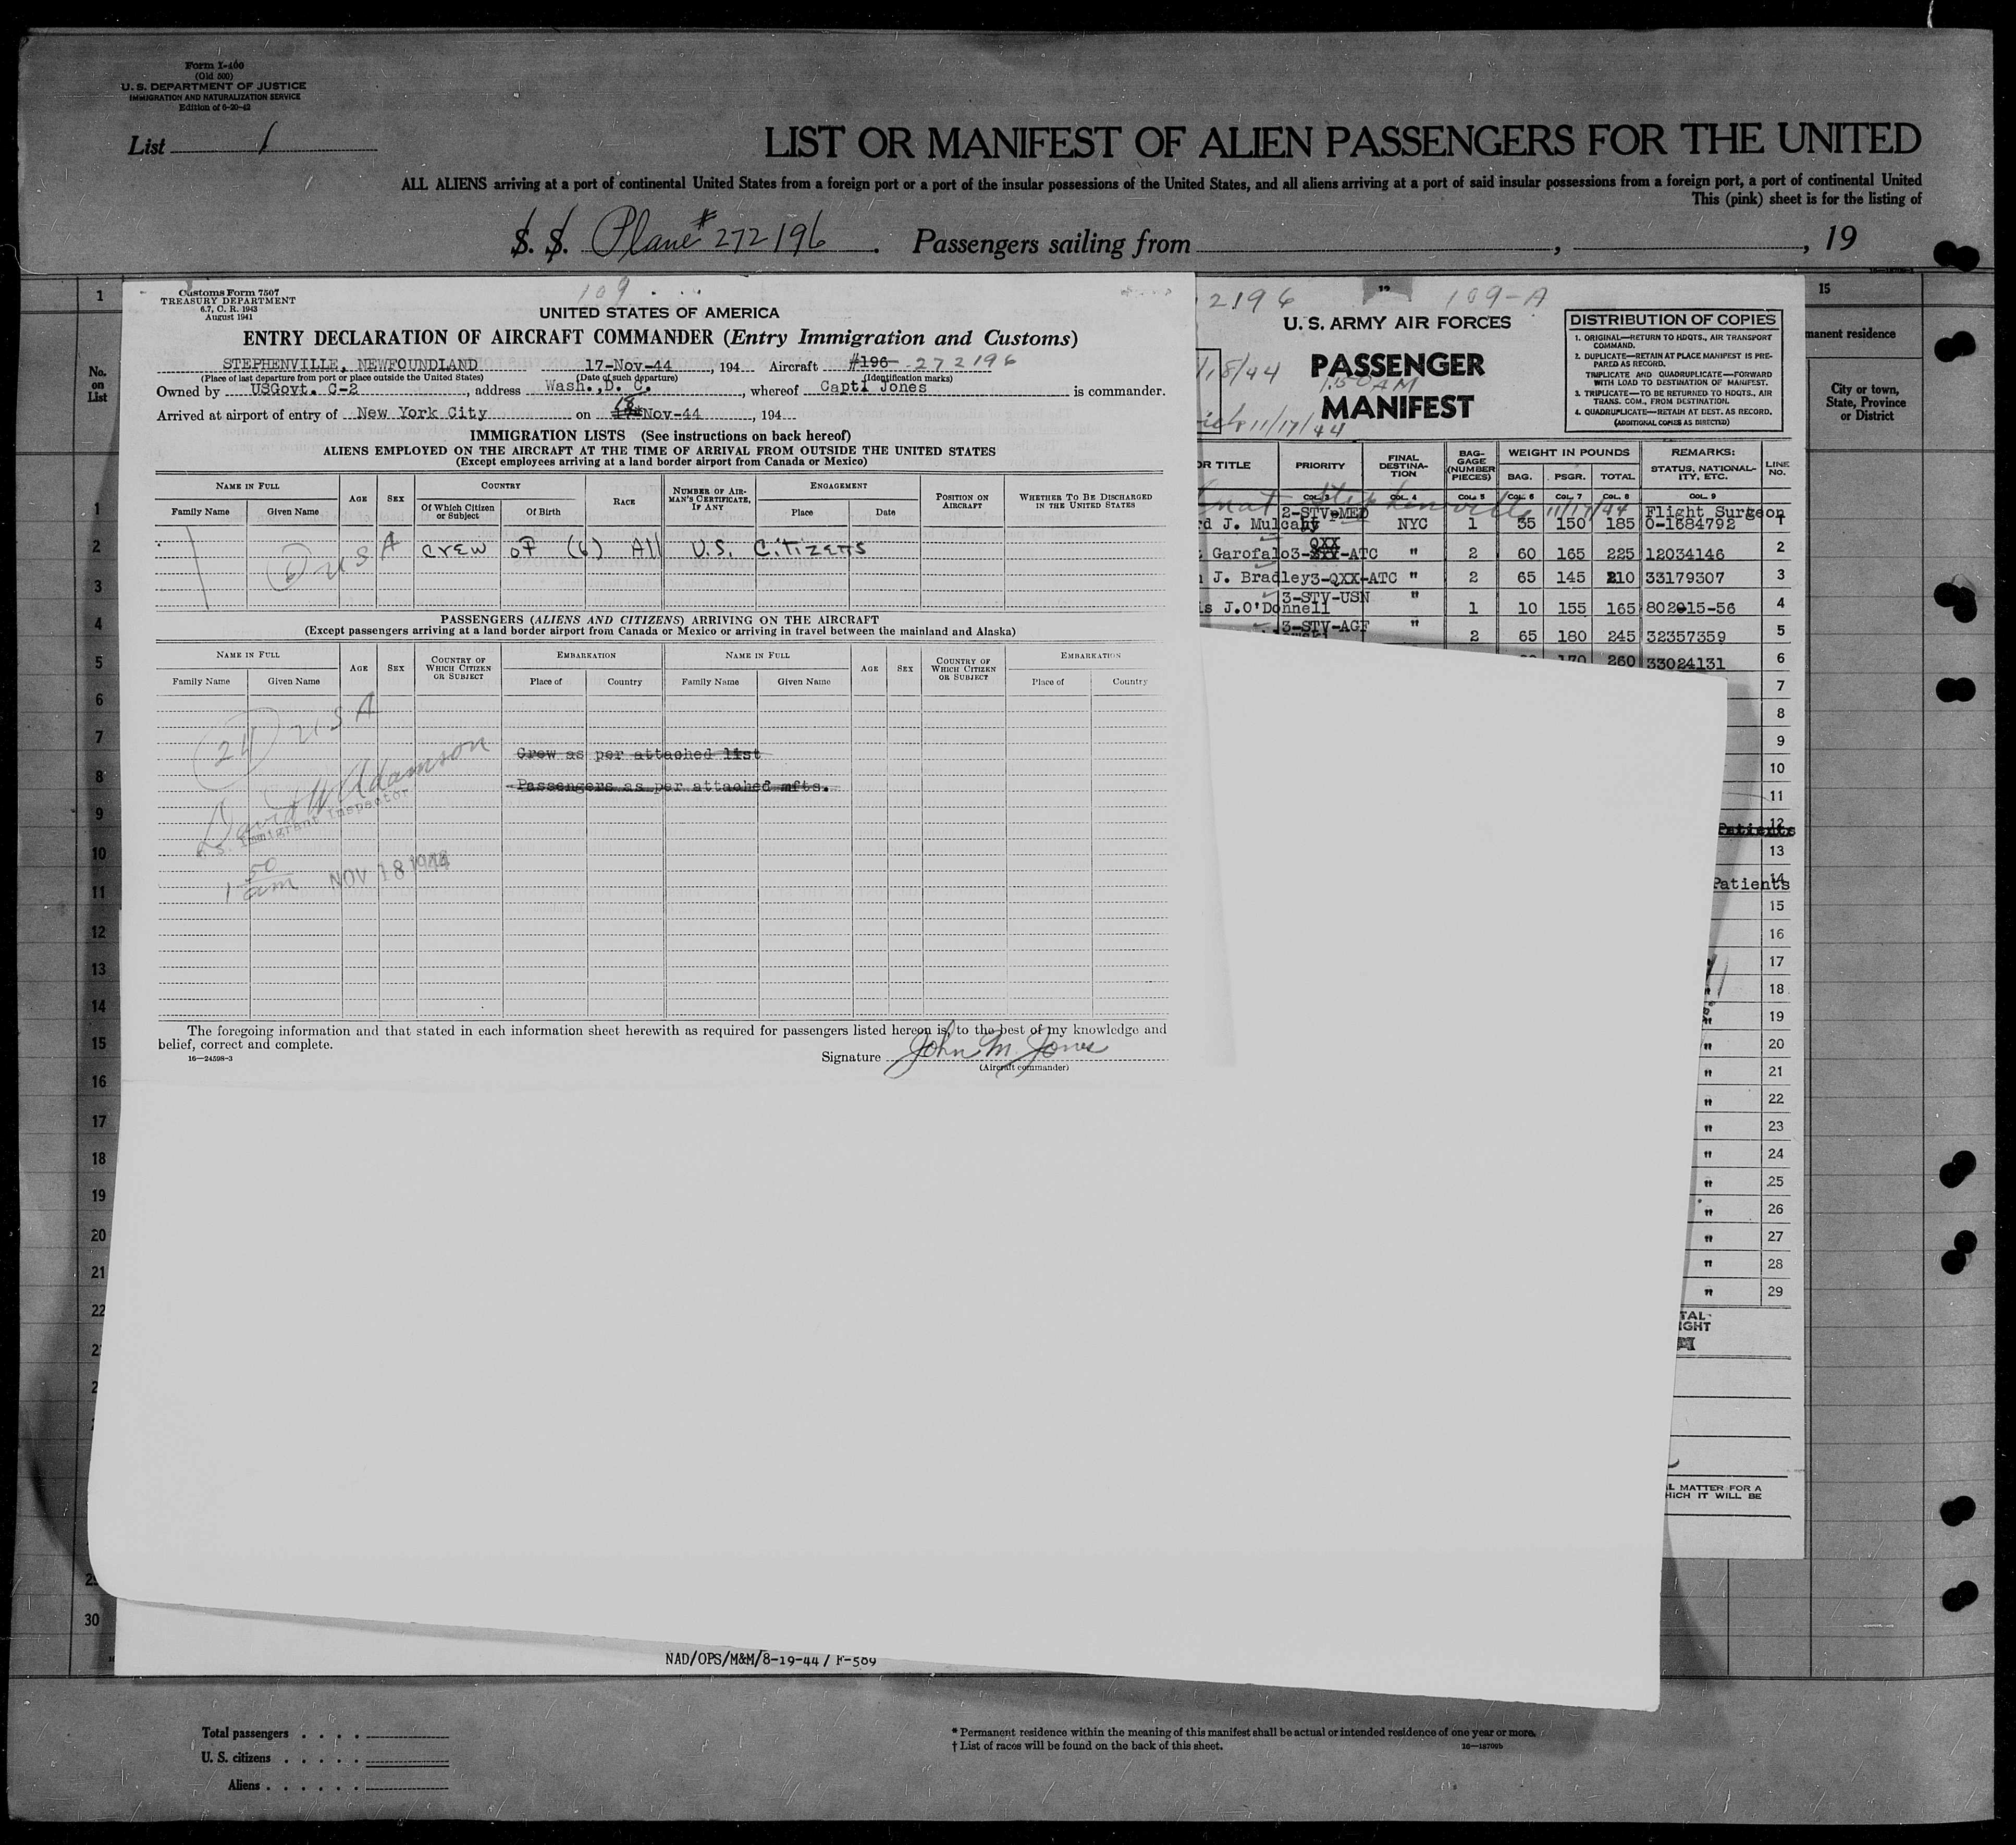 Form I-460
(Old 500)
U. S. DEPARTMENT OF JUSTICE
IMMIGRATION AND NATURALIZATION SERVICE
Edition of 6-20-42
List 1
LIST OR MANIFEST OF ALIEN PASSENGERS FOR THE UNITED
ALL ALIENS arriving at a port of continental United States from a foreign port or a port of the insular possessions of the United States, and all aliens arriving at a port of said insular possessions from a foreign port, a port of continental United
This (pink) sheet is for the listing of
S. S. Plane # 272196 . Passengers sailing from , , 19
Customs Form 7507
TREASURY DEPARTMENT
6.7, C. R. 1943
August 1941
109
UNITED STATES OF AMERICA
ENTRY DECLARATION OF AIRCRAFT COMMANDER (Entry Immigration and Customs)
STEPHENVILLE, NEWFOUNDLAND 17-Nov-44 , 194 Aircraft #196 272196
(Place of last departure from port or place outside the United States) (Date of such departure) (Identification marks)
Owned by USGovt. C-2 , address Wash.,D. C. , whereof Capt1 Jones is commander.
Arrived at airport of entry of New York City on 17 18 Nov-44 , 194
IMMIGRATION LISTS (See instructions on back hereof)
ALIENS EMPLOYED ON THE AIRCRAFT AT THE TIME OF ARRIVAL FROM OUTSIDE THE UNITED STATES
(Except employees arriving at a land border airport from Canada or Mexico)
NAME IN FULL AGE SEX COUNTRY RACE NUMBER OF AIRMAN'S CERTIFICATE, IF ANY ENGAGEMENT POSITION ON AIRCRAFT WHETHER TO BE DISCHARGED IN THE UNITED STATES
Family Name Given Name Of Which Citizen or Subject Of Birth Place Date
6 USA Crew of (6) All U.S. Citizens
PASSENGERS (ALIENS AND CITIZENS) ARRIVING ON THE AIRCRAFT
(Except passengers arriving at a land border airport from Canada or Mexico or arriving in travel between the mainland and Alaska)
NAME IN FULL AGE SEX COUNTRY OF WHICH CITIZEN OR SUBJECT EMBARKATION NAME IN FULL AGE SEX COUNTRY OF WHICH CITIZEN OR SUBJECT EMBARKATION
Family Name Given Name Place of Country Family Name Given Name Place of Country
24 USA
Crew as per attached list
Passengers as per attached mfts.
David W Adamson
U.S. Immigrant Inspector
1 50 am NOV 18 1944
The foregoing information and that stated in each information sheet herewith as required for passengers listed hereon is, to the best of my knowledge and
belief, correct and complete.
16—24598-3
Signature John M. Jones
(Aircraft commander)
2196 12 109-A
U. S. ARMY AIR FORCES
PASSENGER
MANIFEST
/18/44
1:50 AM
11/17/44
DISTRIBUTION OF COPIES
1. ORIGINAL—RETURN TO HDQTS., AIR TRANSPORT
COMMAND.
2. DUPLICATE—RETAIN AT PLACE MANIFEST IS PRE-
PARED AS RECORD.
TRIPLICATE AND QUADRUPLICATE—FORWARD
WITH LOAD TO DESTINATION OF MANIFEST.
3. TRIPLICATE—TO BE RETURNED TO HDQTS., AIR
TRANS. COM., FROM DESTINATION.
4. QUADRUPLICATE—RETAIN AT DEST. AS RECORD.
(ADDITIONAL COPIES AS DIRECTED)
OR TITLE PRIORITY FINAL DESTINA-TION BAG-GAGE (NUMBER PIECES) WEIGHT IN POUNDS REMARKS: STATUS, NATIONAL-ITY, ETC. LINE NO.
BAG. PSGR. TOTAL
COL. 3 COL. 4 COL. 5 COL. 6 COL. 7 COL. 8 COL. 9
at Stephenville 11/17/44
2-STV-MED Flight Surgeon
d J. Mulcahy NYC 1 35 150 185 O-1684792 1
Garofalo 3-QXX-ATC " 2 60 165 225 12034146 2
J. Bradley 3-QXX-ATC " 2 65 145 210 33179307 3
3-STV-USN "
s J.O'Donnell 1 10 155 165 802915-56 4
3-STV-AGF "
2 65 180 245 32357359 5
170 260 33024131 6
7
8
9
10
11
12
Patients
13
14
Patients
15
16
17
" 18
" 19
" 20
" 21
" 22
" 23
" 24
" 25
" 26
" 27
" 28
" 29
TAL
IGHT
L MATTER FOR A
HICH IT WILL BE
15
manent residence
City or town,
State, Province
or District
No.
on
List
1
1
2
3
4
5
6
7
8
9
10
11
12
13
14
15
16
17
18
19
20
21
22
30
NAD/OPS/M&M/8-19-44 / F-509
Total passengers . . . .
U. S. citizens . . . . .
Aliens . . . . . .
* Permanent residence within the meaning of this manifest shall be actual or intended residence of one year or more.
† List of races will be found on the back of this sheet.
16—18709b